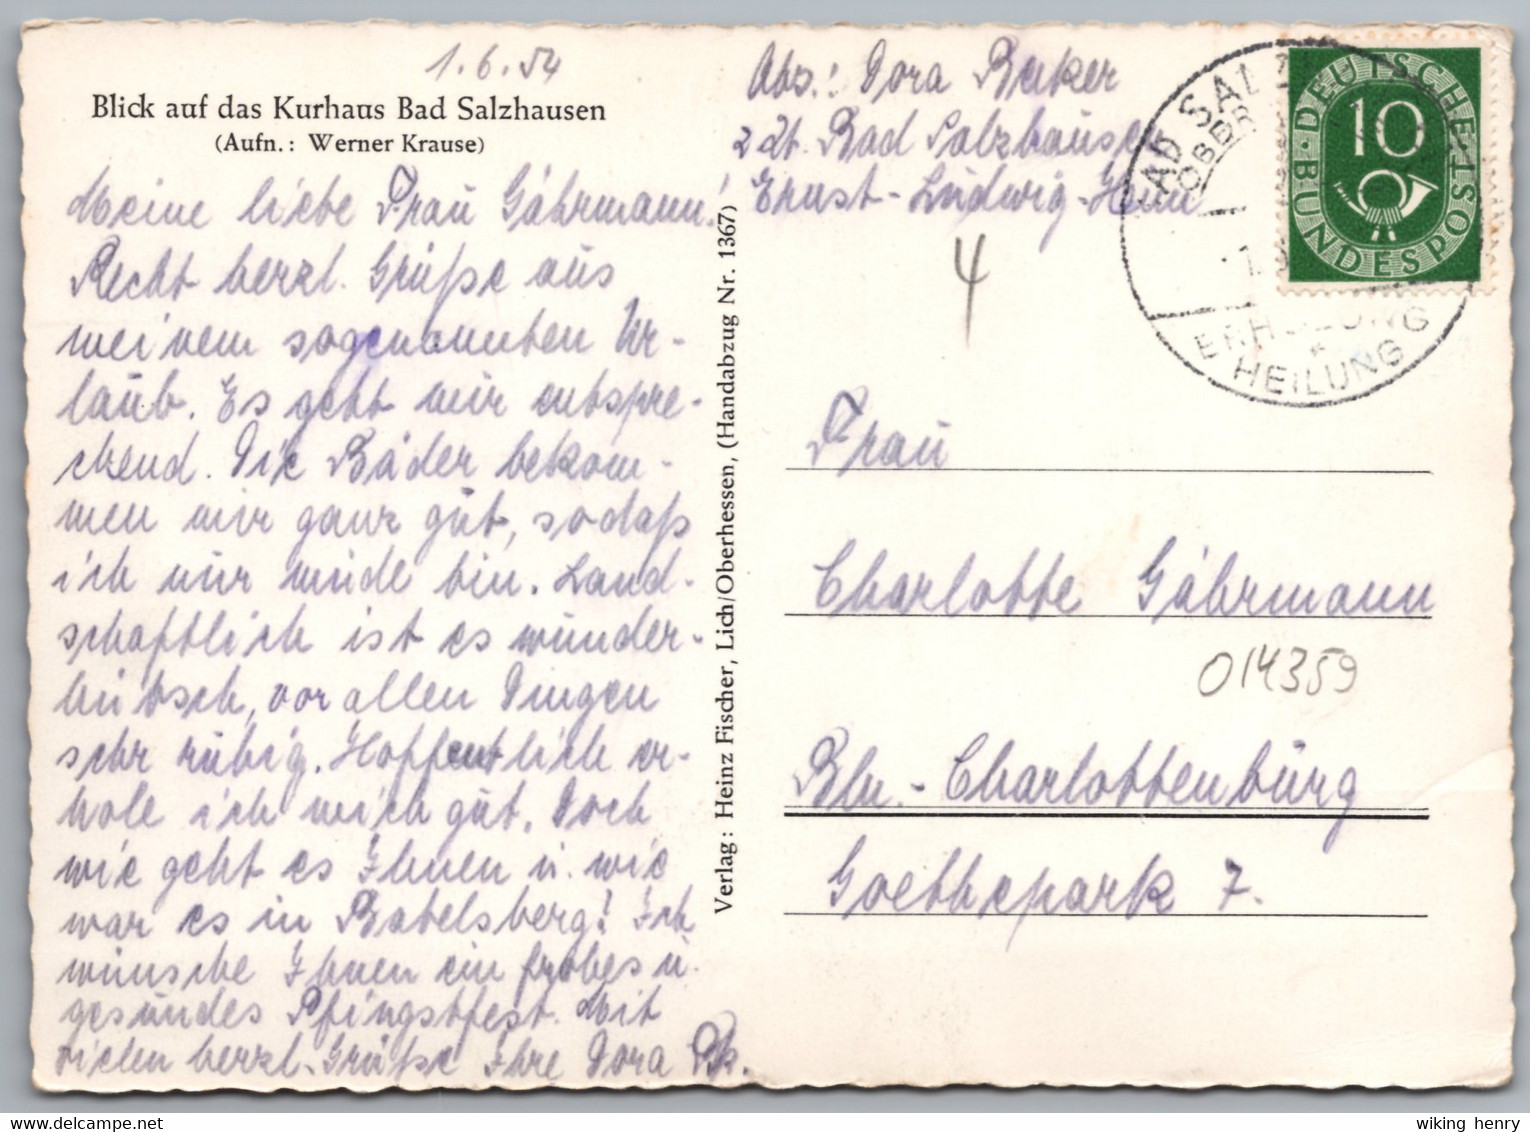 1.6.54
Blick auf das Kurhaus Bad Salzhausen
(Aufn.: Werner Krause)
Meine liebe Frau Gährmann!
Recht herzl. Grüße aus
meinem sogenannten Ur-
laub. Es geht mir entspre-
chend. Die Bäder bekom-
men mir ganz gut, sodaß
ich nur müde bin. Land-
schaftlich ist es wunder-
hübsch, vor allen Dingen
sehr ruhig. Hoffentlich er-
hole ich mich gut. Doch
wie geht es Ihnen u. wie
war es in Babelsberg? Ich
wünsche Ihnen ein frohes u.
gesundes Pfingstfest. Mit
vielen herzl. Grüße Ihre Dora
Verlag: Heinz Fischer, Lich/Oberhessen, (Handabzug Nr. 1367)
Abs.: Dora
z Zt. Bad Salzhausen
Ernst-Ludwig-Heim
4
BAD SALZ
OBERH
1.
ERHOLUNG
*
HEILUNG
DEUTSCHE BUNDESPOST
10
Frau
Charlotte Gährmann
014359
Bln.-Charlottenburg
Goethepark 7.
wiking henry